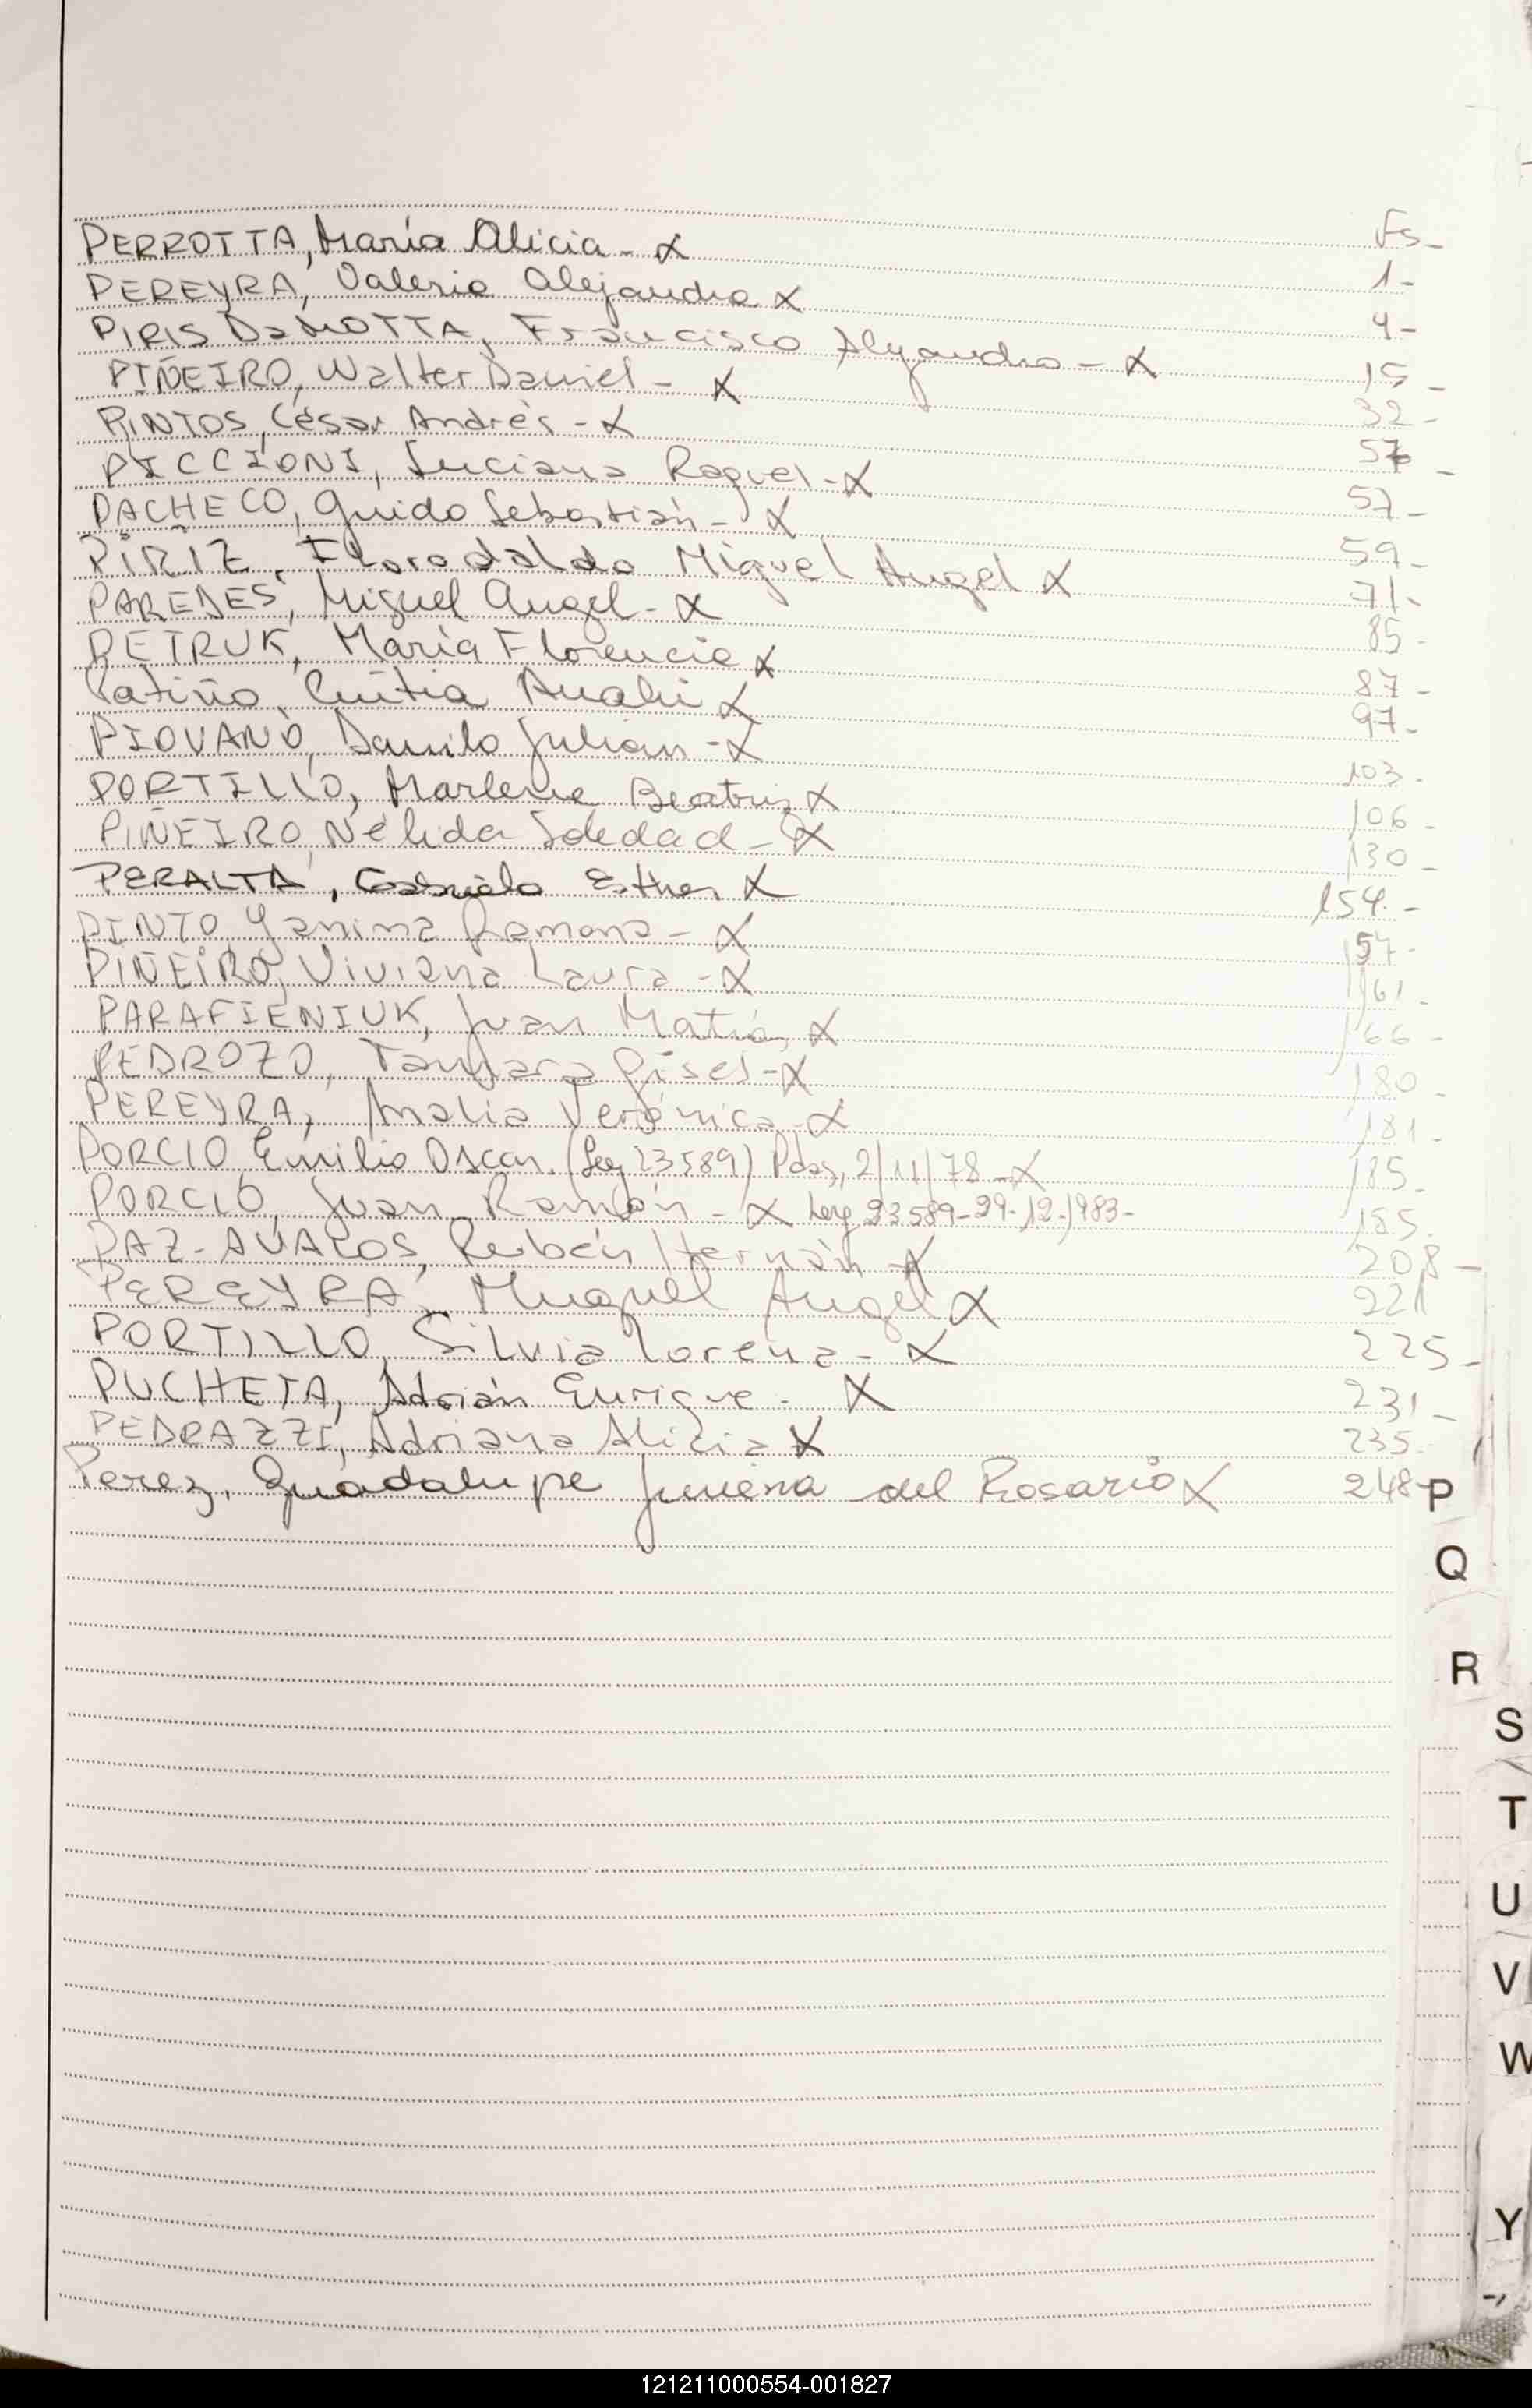 Fs-
PERROTTA, María Alicia - X 1-
PEREYRA, Valeria Alejandra X 4-
PIRIS DaMOTTA, Francisco Alejandro - X 15-
PIÑEIRO, Walter Daniel - X 32-
PINTOS, César Andrés - X 57-
PICCIONI, Luciana Raquel - X 57-
PACHECO, Guido Sebastián - X 59-
PIRIZ, Florodaldo Miguel Angel X 71-
PAREDES, Miguel Angel - X 85-
PETRUK, María Florencia X 87-
Patiño, Cintia Anahi X 97-
PIOVANO, Danilo Julián - X 103-
PORTILLO, Marlene Beatriz X 106-
PIÑEIRO, Nélida Soledad - X 130-
PERALTA, Gabriela Esther X 154-
PINTO, Yanina Ramona - X 157-
PIÑEIRO, Viviana Laura - X 161-
PARAFIENIUK, Juan Matías X 166-
PEDROZO, Tamara Gisel - X 180-
PEREYRA, Analía Verónica - X 181-
PORCIO, Emilio Oscar. (Ley 23589) Pdas, 2/11/78 - X 185-
PORCIO, Juan Ramón - X Ley 23589-29-12-1983- 185-
PAZ-AVALOS, Rubén Hernán - X 208-
PEREYRA, Miguel Angel X 221
PORTILLO, Silvia Lorena - X 225-
PUCHETA, Adrián Enrique - X 231-
PEDRAZZI, Adriana Alicia X 235-
Perez, Guadalupe Jimena del Rosario X 248-
P
Q
R
S
T
U
V
W
Y
121211000554-001827